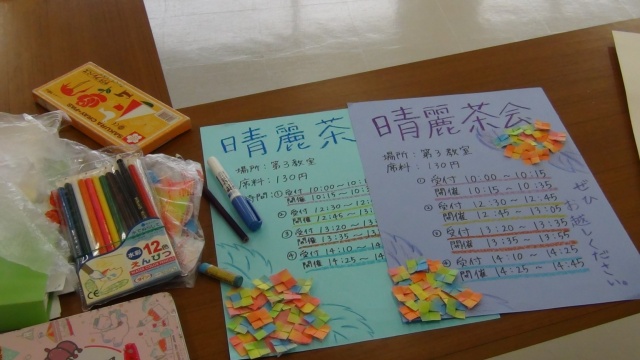 晴麗茶
場所：第3教室
席料：130円
時間：①受付 10:00～10:
開催 10:15～10:
②受付 12:30～12
開催 12:45～13
③受付 13:20～13
開催 13:35～
④受付 14:10～14
開催 14:25～14
晴麗茶会
場所：第3教室
席料：130円
①受付 10:00～10:15
開催 10:15～10:35
②受付 12:30～12:45
開催 12:45～13:05
③受付 13:20～13:35
開催 13:35～13:55
④受付 14:10～14:25
開催 14:25～14:45
ぜひお越しください。
12色
えんぴつ
CE